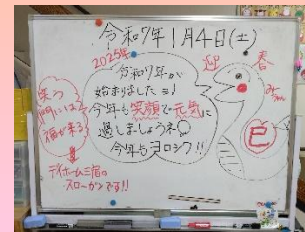 令和7年1月4日(土)
2025年
迎
春
令和7年が
始まりました
今年も笑顔で元気に
過しましょうネ
今年もヨロシク!!
みー
巳
笑う
門には
福が来る
デイホーム三宿の
スローガンです!!